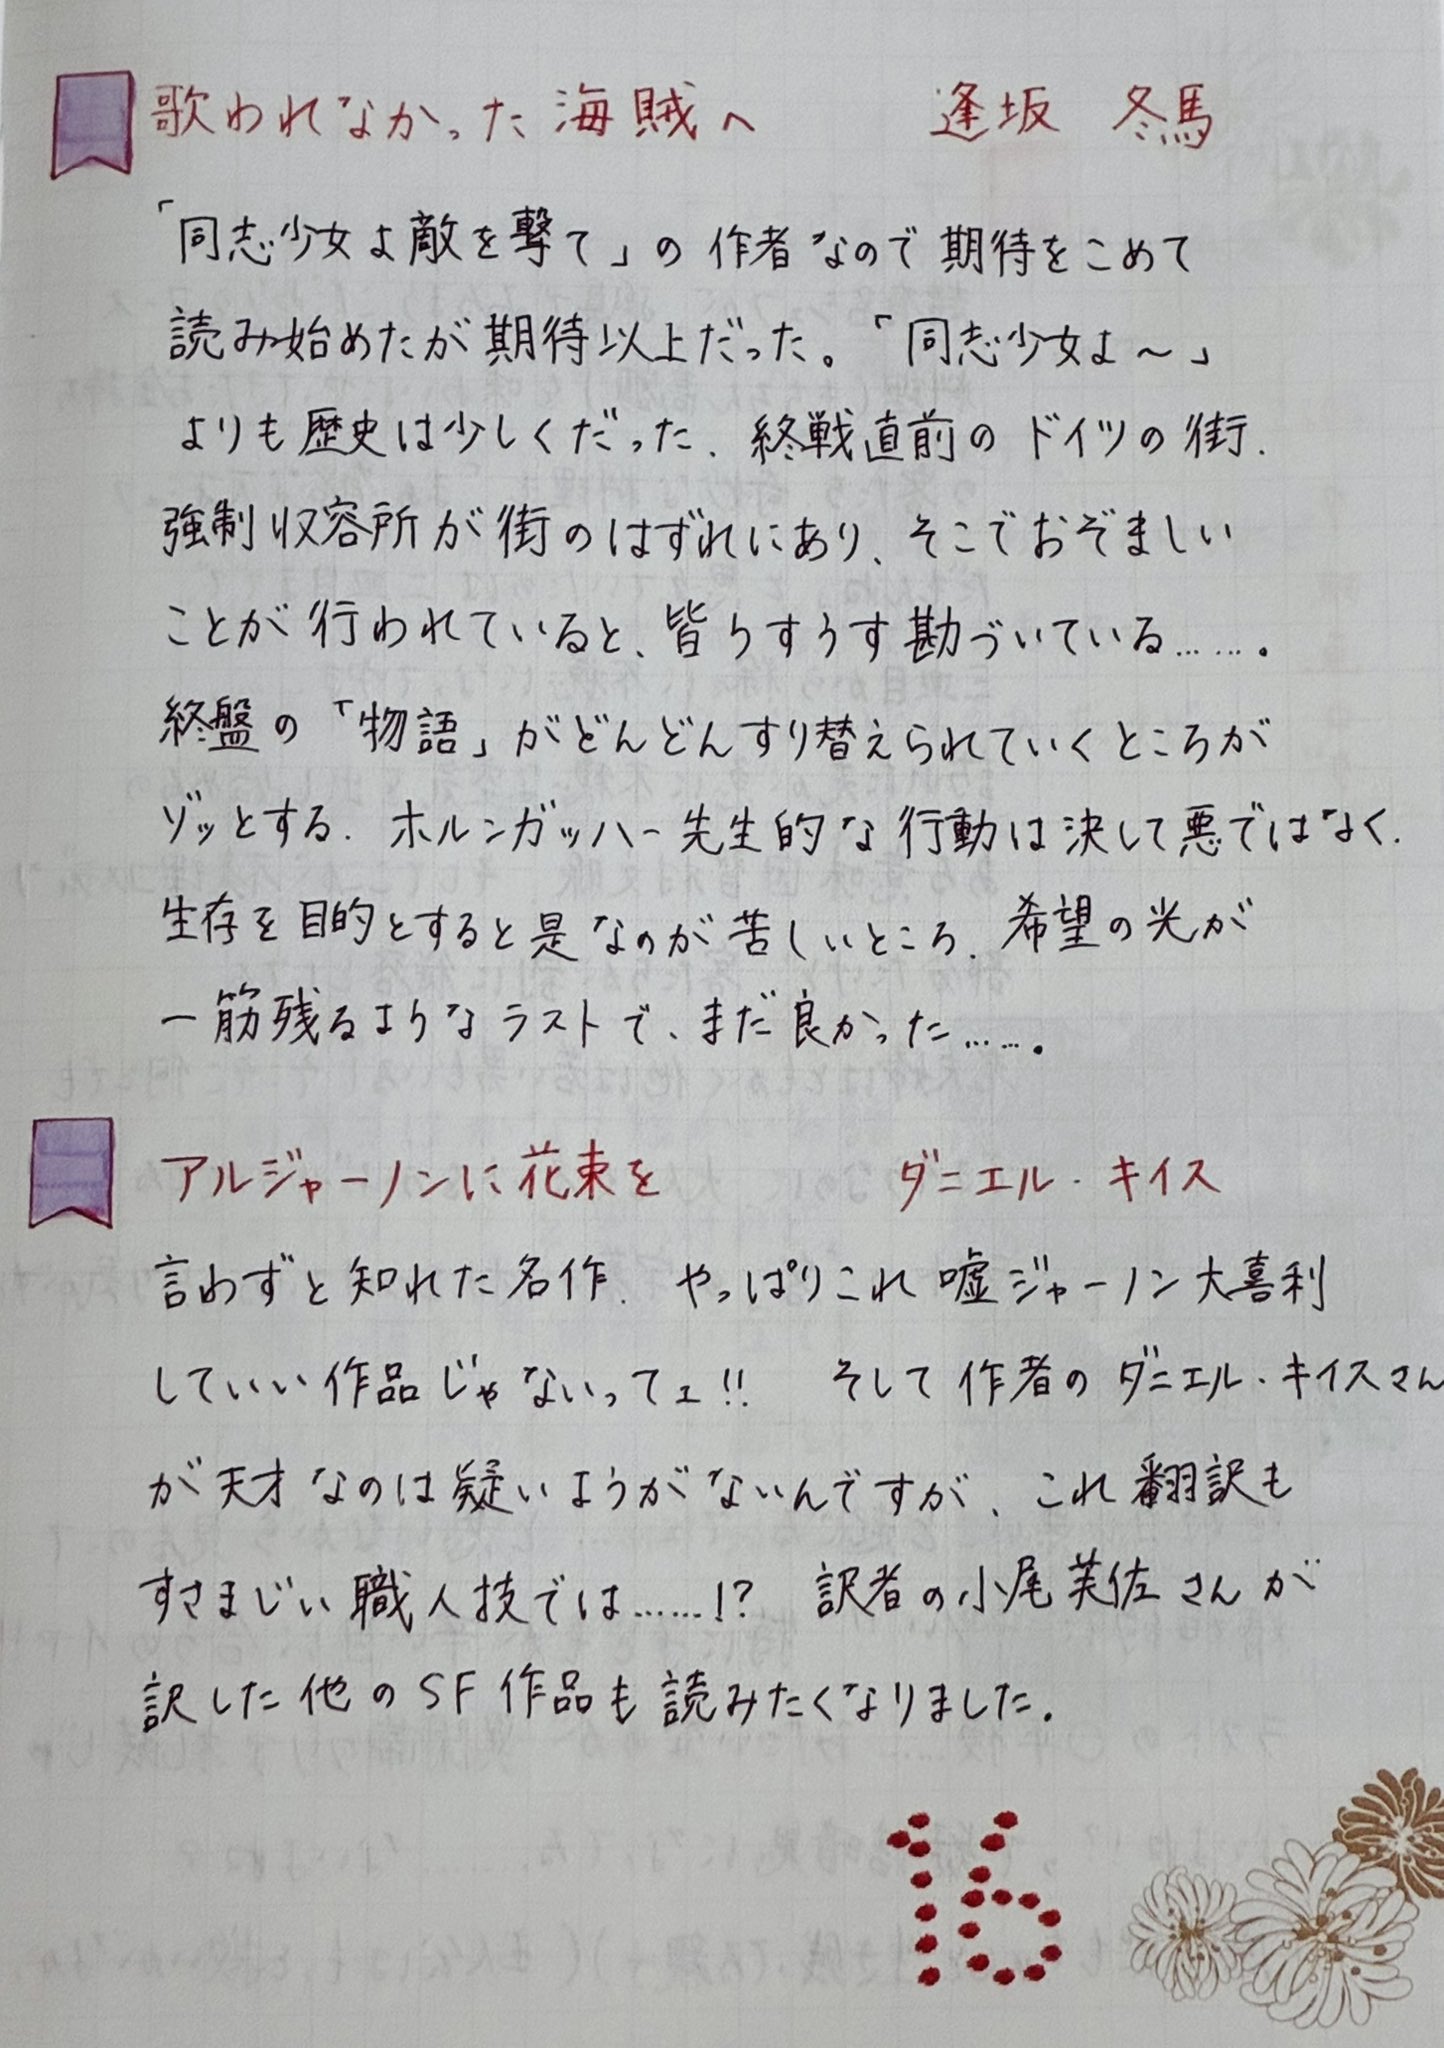 歌われなかった海賊へ 逢坂 冬馬
「同志少女よ敵を撃て」の作者なので期待をこめて
読み始めたが期待以上だった。「同志少女よ～」
よりも歴史は少しくだった、終戦直前のドイツの街.
強制収容所が街のはずれにあり、そこでおぞましい
ことが行われていると、皆うすうす勘づいている…….
終盤の「物語」がどんどんすり替えられていくところが
ゾッとする. ホルンガッハー先生的な行動は決して悪ではなく.
生存を目的とすると是なのが苦しいところ. 希望の光が
一筋残るようなラストで、まだ良かった…….
アルジャーノンに花束を ダニエル・キイス
言わずと知れた名作. やっぱりこれ嘘ジャーノン大喜利
していい作品じゃないってェ!! そして作者のダニエル・キイスさん
が天才なのは疑いようがないんですが、これ翻訳も
すさまじい職人技では……!? 訳者の小尾芙佐さんが
訳した他のSF作品も読みたくなりました.
16